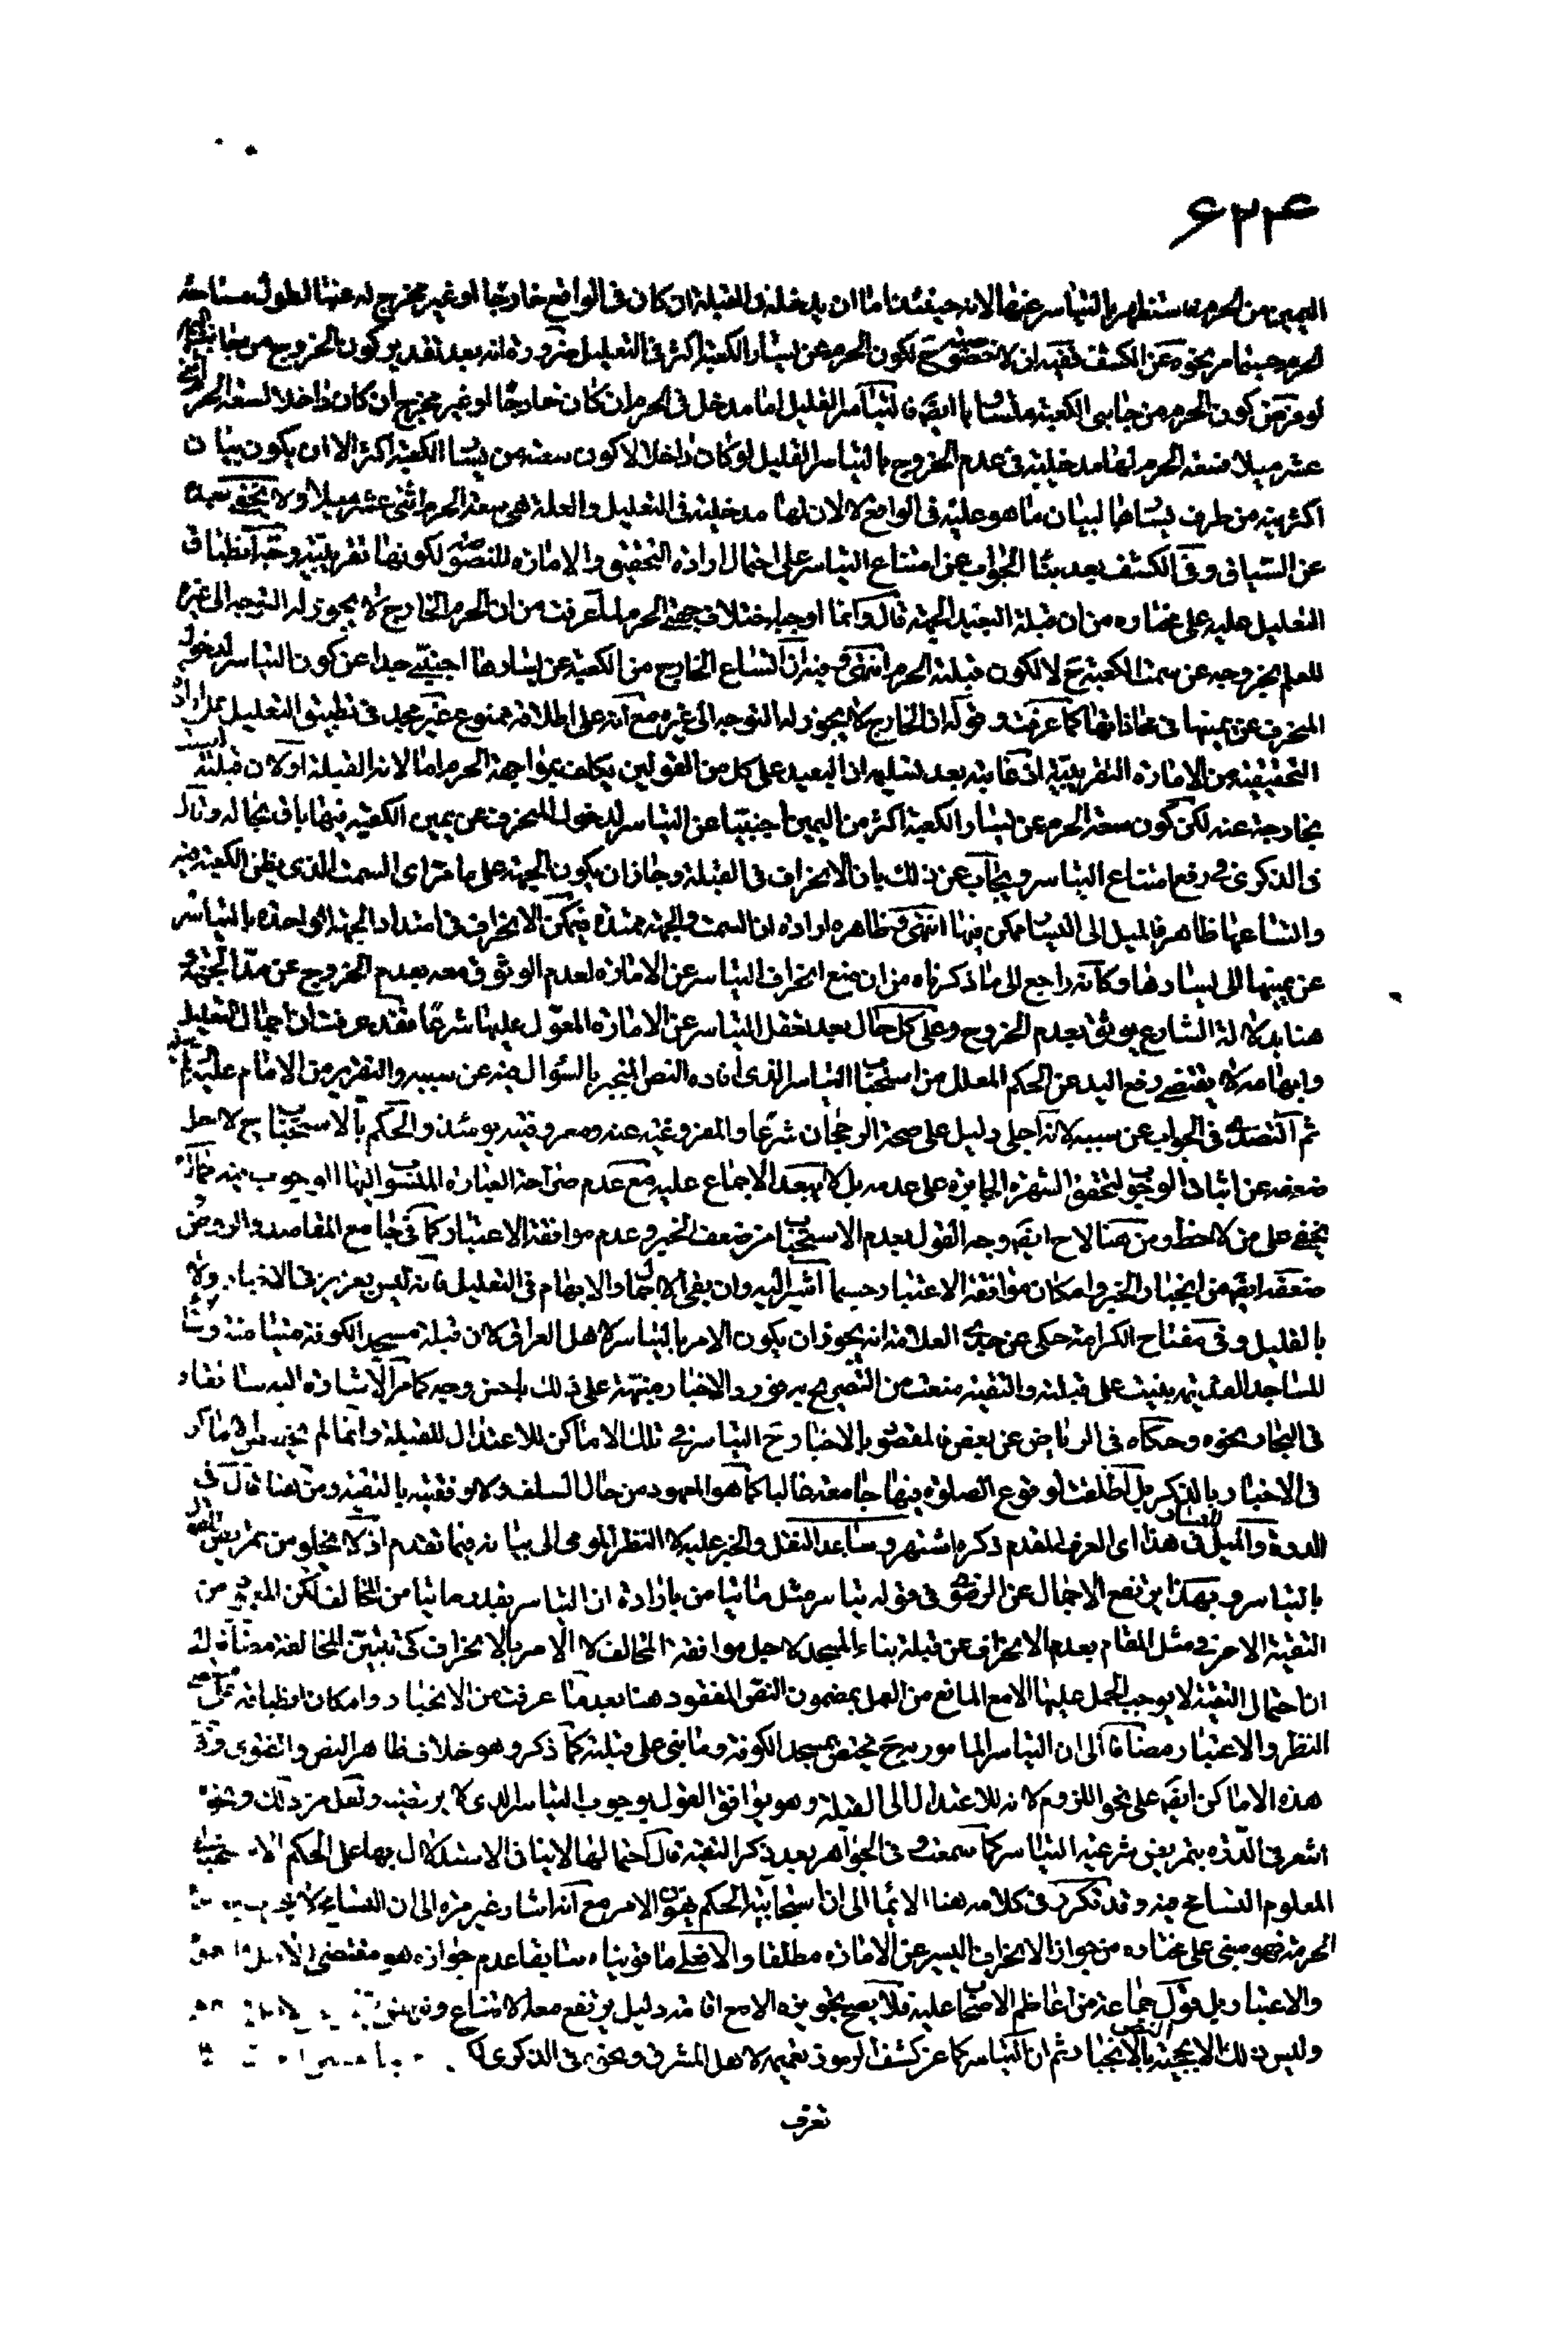 ۶۲۳۴
اليمين من الحرم فاستظهر بالتياسر عنها لانه حينئذ اما ان يدخله في القبلة ان كان في الواقع خارجا او غير مخرج له عنها لطول مساحة
الحرم حسبما مر نحوه عن الكشف ففيه ان لا خصوصية ح لكون الحرم عن يسار الكعبة اكثر في التعليل ضرورة انه بعد تقدير كون الخروج من جانب
لو فرض كون الحرم من جانبي الكعبة متساويا ايضا فالتياسر القليل اما مدخل في الحرم ان كان خارجا او غير مخرج ان كان داخلا لسعة الحرم اثنى
عشر ميلا فسعة الحرم لها مدخلية في عدم الخروج بالتياسر القليل لو كان داخلا لا كون سعته من يسار الكعبة اكثر الا ان يكون بيان
اكثريته من طرف يسارها لبيان ما هو عليه في الواقع لا لان لها مدخلية في التعليل والعلة هي سعة الحرم اثنى عشر ميلا ولا يخفى بعده
عن السياق وفي الكشف بعد بناء الجواب عن امتناع التياسر على احتمال ارادة التحقيق والامارة المنصوبة لكونها تقريبية وجه انطباق
التعليل عليه على مختاره من ان قبلة البعيد الجهة قال وانما اوجبه اختلاف جهتي الحرم لما عرفت من ان الحرم الخارج لا يجوز له التوجه الى غيره
للعلم بخروجه عن سمت الكعبة ح لا لكون قبلته الحرم انتهى وفيه ان اتساع الخارج من الكعبة عن يسارها اجنبي جدا عن كون التياسر لدخول
المنحرف عن يمينها في محاذاتها كما عرفت وقوله ان الخارج لا يجوز له التوجه الى غيره مع انه على اطلاقه ممنوع غير مجد في تطبيق التعليل على ارادة
التحقيقية من الامارة التقريبية اذ غايته بعد تسليمه ان البعيد على كل من القولين يكلف بمواجهة الحرم اما لانه القبلة او لان قبلته ليست
بخارجة عنه لكن كون سعة الحرم عن يسار الكعبة اكثر من اليمين اجنبيا عن التياسر لدخول المنحرف عن يمين الكعبة فيها باق بحاله وقال
في الذكرى في رفع امتناع التياسر ويجاب عن ذلك بان الانحراف في القبلة وجاز ان يكون الجهة على ما مر اى السمت الذي يظن الكعبة فيه
واتساعها ظاهر فالميل الى اليسار ممكن فيها انتهى وظاهره ارادة ان السمت والجهة ممتدة فيمكن الانحراف في امتداد الجهة الواحدة بالتياسر
عن يمينها الى يسارها وكانه راجع الى ما ذكرناه من ان منع انحراف التياسر عن الامارة لعدم الوثوق معه بعدم الخروج عن هذا الجهة و
هنا بدلالة الشارع يوثق بعدم الخروج وعلى كل حال بعد تعقل التياسر عن الامارة المعول عليها شرعا فقد عرفت ان اجمال التعليل
وابهامه لا يقتضي رفع اليد عن الحكم المعلل من استحباب التياسر الذي افاده النص المنجبر بالسؤال فيه عن سببه والتقرير من الامام عليه
ثم التصدى في الجواب عن سببه لانه اجلى دليل على صحة الرجحان شرعا والمفروغية عنه ومعروفيته يومئذ والحكم بالاستحباب ح لاجل
ضعفه عن اثبات الوجوب لتحقق الشهرة الجابرة على عدمه بل لا يبعد الاجماع عليه مع عدم صراحة العبارة المنسوب اليها الوجوب فيه كما لا
يخفى على من لاحظ ومن هنا لاح ايضا وجه القول بعدم الاستحباب من ضعف الخبر وعدم موافقة الاعتبار كما في جامع المقاصد والروض
ضعفه ايضا من انجبار الخبر وامكان موافقة الاعتبار حسبما اشير اليه وان بقى الاجمال والابهام في التعليل فانه ليس بعزيز في الاخبار ولا
بالقليل وفي مفتاح الكرامة حكى عن جدي العلامة انه يجوز ان يكون الامر بالتياسر لاهل العراق لان قبلة مسجد الكوفة متيامنة وسائر
المساجد العتيقة بنيت على قبلته والتقية منعت من التصريح به فورد الاخبار منبهة على ذلك باحسن وجه كما مر الاشارة اليه سابقا و
في البحار نحوه وحكاه في الرياض عن بعض فالمقصود بالاخبار ح التياسر في تلك الاماكن للاعتدال للقبلة وانما لم
في الاخبار بالذكر بل اطلقت لوقوع الصلوة فيها جامعة غالبا كما هو المعهود من حال السلف ولا وفقيته بالتقية ومن هنا قال في
الدرة والميل لليسار في هذا اى العرف المتقدم ذكره اشتهر وساعد النقل والخبر عليه لا النظر المومى الى بيانه فيما تقدم اذ لا يخلو من تعريض
بالتياسر وبهذا يرتفع الاجمال عن الرضوي في قوله تياسر مثل ما تيامن بارادة ان التياسر بقدر ما تيامن المخالف لكن المعروف من
التقية الامر في مثل المقام بعدم الانحراف عن قبلة بناء المسجد لاجل موافقة المخالف لا الامر بالانحراف كي تتبين المخالفة مضافا الى
ان احتمال التقية لا يوجب الحمل عليها الا مع المانع من العمل بمضمون النص المفقود هنا بعد ما عرفت من الانجبار وامكان انطباقه على
النظر والاعتبار مضافا الى ان التياسر المامور به ح يختص بمسجد الكوفة وما بنى على قبلته كما ذكر وهو خلاف ظاهر النص والفتوى وفي
هذه الاماكن ايضا على نحو اللزوم لانه للاعتدال الى القبلة وهو يوافق القول بوجوب التياسر الذي لا يرتضيه ولعل من ذلك ونحوه
اشعر في الدرة بتمريض شرعية التياسر كما سمعت وفي الجواهر بعد ذكر التقية قال احتمالها لا ينافي الاستدلال بها على الحكم الاستحبابي
المعلوم التسامح فيه وقد تكرر في كلامه هنا الايماء الى ان استحبابية الحكم يهون الامر مع انه اشار غير مرة الى ان التسامح لا
الحرمة فهو مبني على مختاره من جواز الانحراف اليسير عن الامارة مطلقا والا فعلى ما قويناه سابقا عدم جوازه هو مقتضى
والاعتبار بل قول جماعة من اعاظم الاصحاب عليه فلا يصح تجويزه الا مع اقامة دليل يرتفع معه الامتناع
وليس ذلك الا بحجية النص بالانجبار ثم ان التياسر كما عن كشف الرموز تعميمه لاهل المشرق ونحوه في الذكرى
تعرف